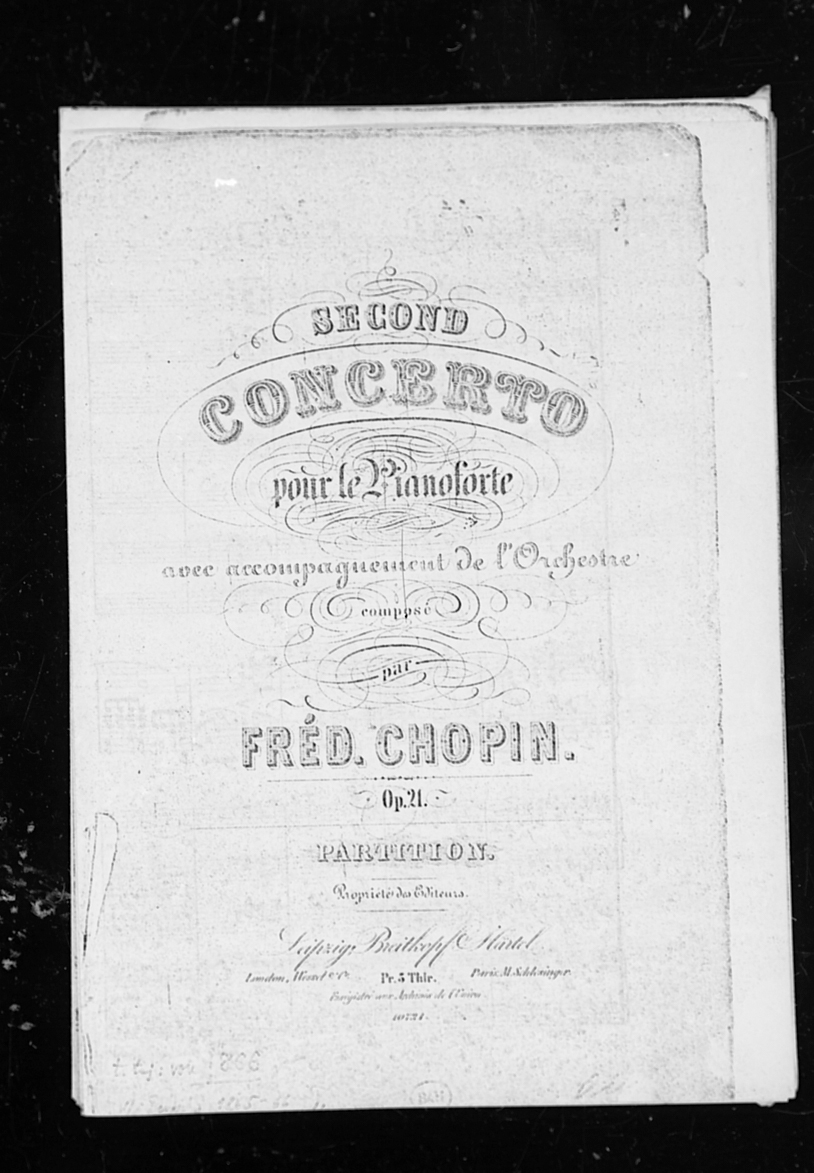 SECOND
CONCERTO
pour le Pianoforte
avec accompagnement de l'Orchestre
composé
par
FRÉD. CHOPIN.
Op. 21.
PARTITION.
Propriété des Editeurs.
Leipzig, Breitkopf & Härtel
London, Wessel & Co. Pr. 5 Thlr. Paris, M. Schlesinger.
Enregistré aux Archives de l'Union
10721.
1866